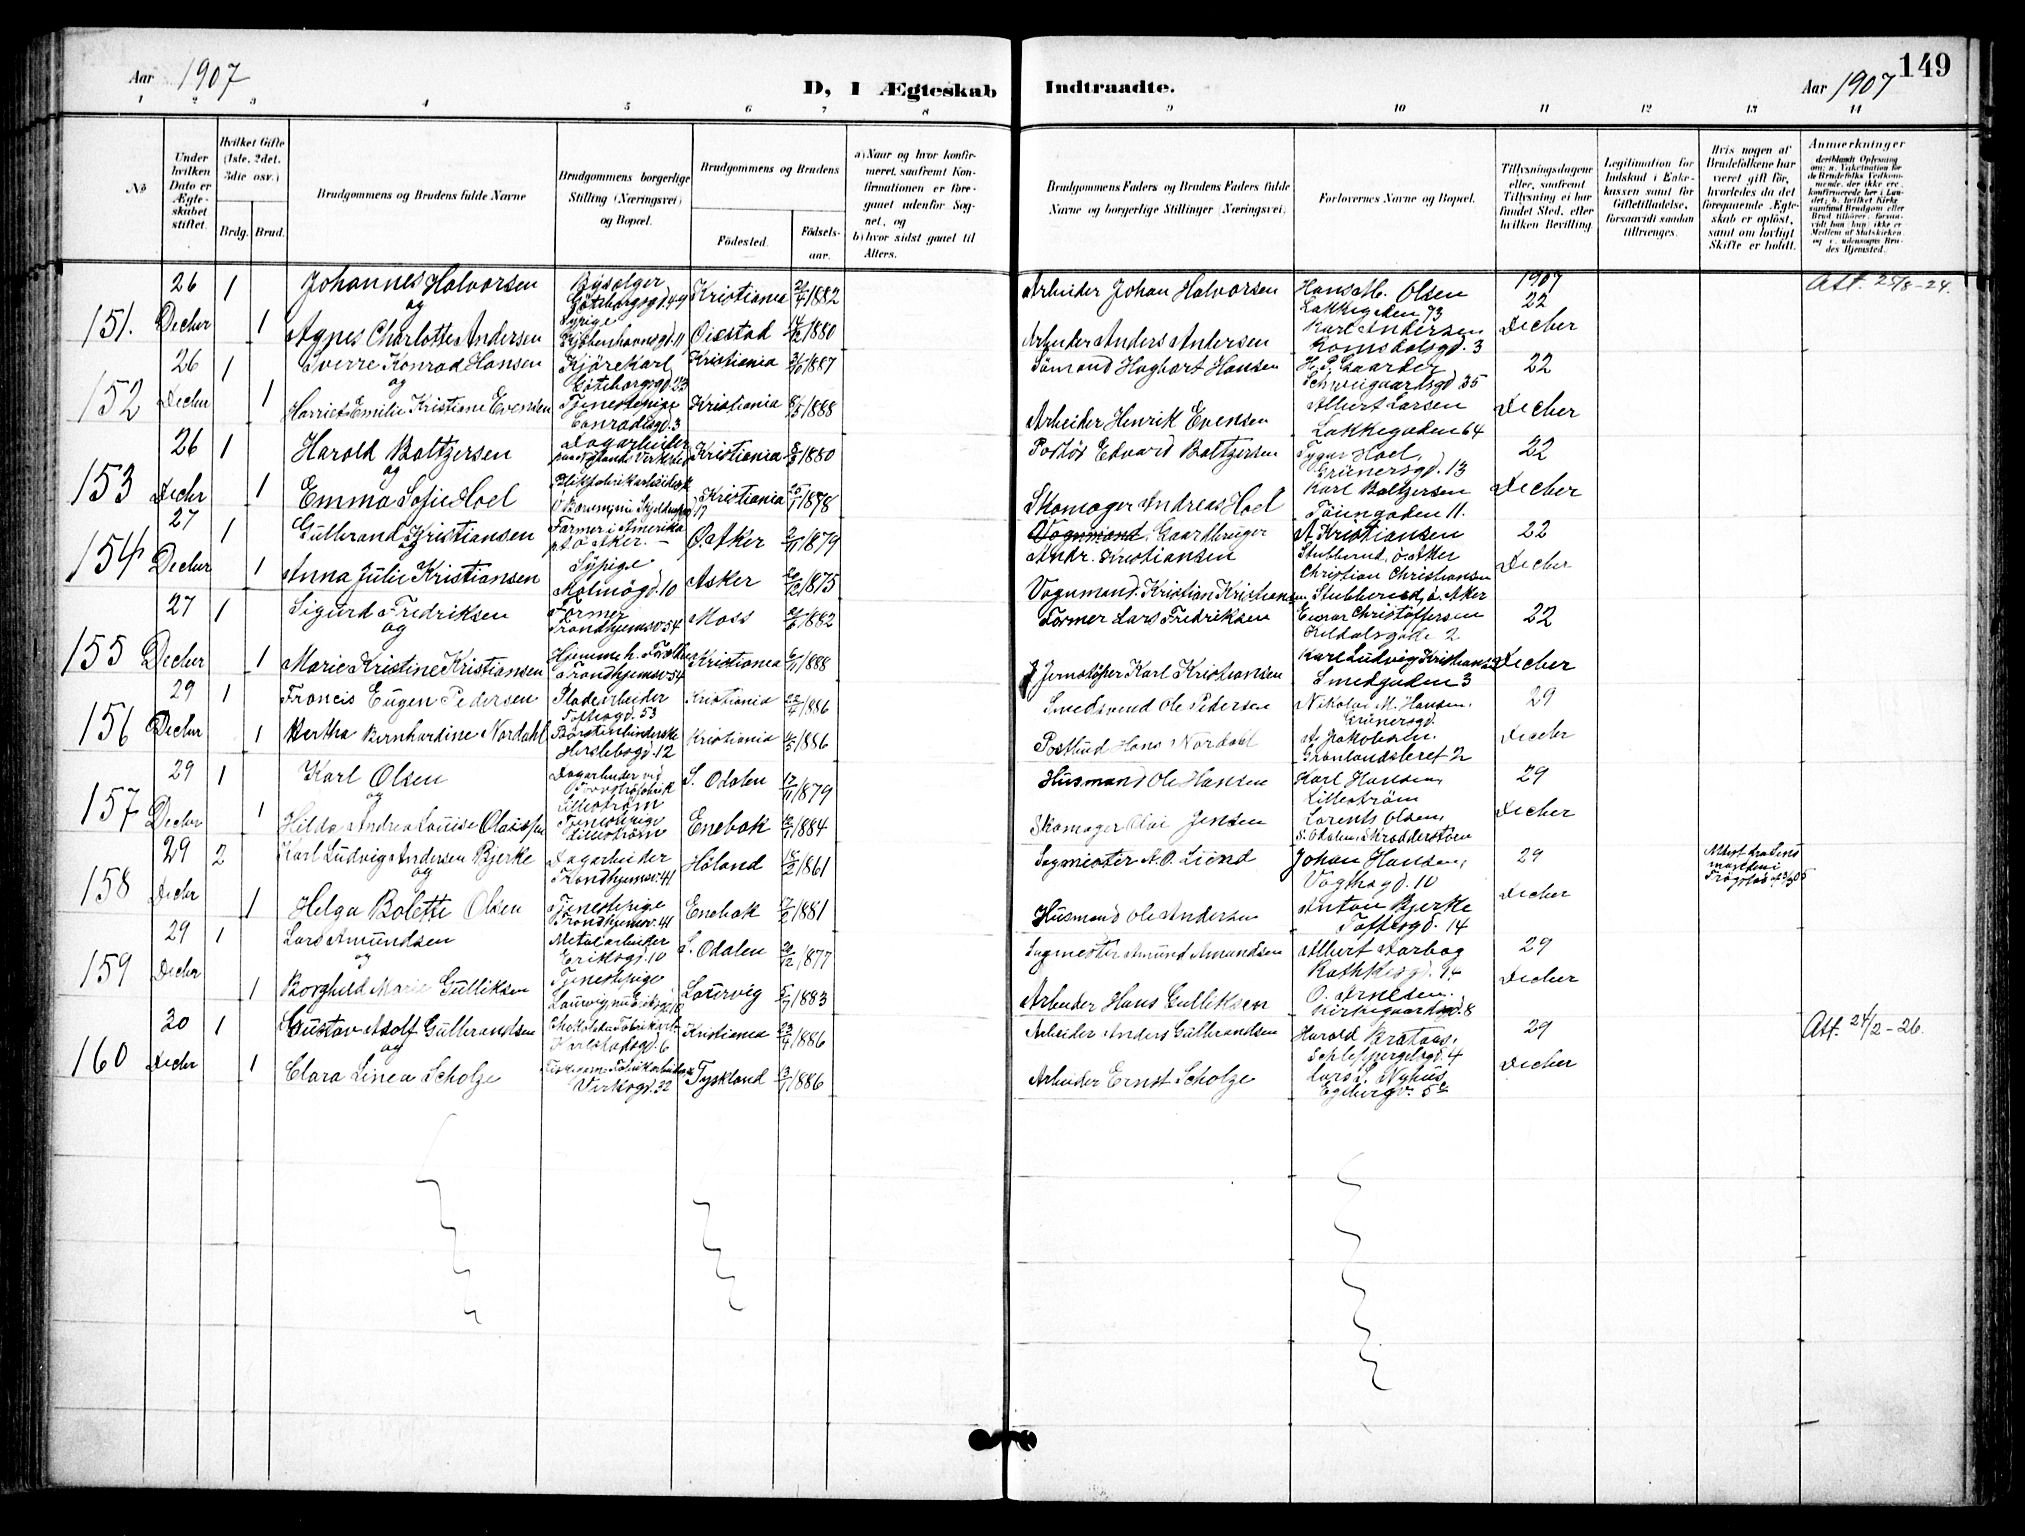 149
Aar 1907
D, 1 Ægteskab Indtraadte.
Aar 1907
1 2 3 4 5 6 7 8 9 10 11 12 13 14
No
Under hvilken Dato er Ægteskabet stiftet.
Hvilket Gifte (1ste, 2det, 3die osv.)
Brdg. Brud.
Brudgommens og Brudens fulde Navne
Brudgommens borgerlige Stilling (Næringsvei) og Bopæl.
Brudgommens og Brudens
Fødested.
Fødselsaar.
a) Naar og hvor konfirmeret, saafremt Konfirmationen er foregaaet udenfor Sognet, og
b) hvor sidst gaaet til Alters.
Brudgommens Faders og Brudens Faders fulde Navne og borgerlige Stillinger (Næringsvei).
Forlovernes Navne og Bopæl.
Tillysningsdagene eller, saafremt Tillysning ei har fundet Sted, efter hvilken Bevilling.
Legitimation for Indskud i Enkekassen samt for Giftetilladelse, forsaavidt saadan tiltrænges.
Hvis nogen af Brudefolkene har været gift før, hvorledes da det foregaaende Ægteskab er opløst, samt om lovligt Skifte er holdt.
Anmerkninger
151. 26 Decbr 1 Johannes Halvorsen Göteborgsgd. 49 Kristiania 1882 Arbeider Johan Halvorsen Olsen Lakkegaden 73 1907 22 Decbr Att. 25/8-24.
og
1 Agnes Charlotte Andersen Sypige Kjøbenhavnsgd. 11 1880 Arbeider Anders Andersen Karl Andersen Romsdalsgd. 3
152 26 Decbr 1 Sverre Konrad Hansen Kjørekarl Göteborgsgd. 23 Kristiania 1887 Sømand Hagbart Hansen Schweigaardsgd 35 22 Decbr
og
1 Harriet Emilie Kristiane Evensen Tjenestepige Conradisgd. 3 Kristiania 1888 Arbeider Henrik Evensen Albert Larsen Lakkegaden 64
153 26 Decbr 1 Harald Baltzersen Dagarbeider Kristiania 1880 Edvard Baltzersen Hoel, Grünersgd. 13 22 Decbr
og
1 Emma Sofie Hoel Kristiania 1878 Skomager Andreas Hoel Karl Baltzersen Tøiengaden 11.
154 27 Decbr 1 Gulbrand Kristiansen Farmer i Amerika Ø. Aker 1879 Gaardbruger Andr. Kristiansen A Kristiansen Stubberud, ø. Aker 22 Decbr
1 Anna Julie Kristiansen Sypige Malmøgd. 10 Asker 1875 Vognmand. Kristian Kristiansen Christian Christiansen Stubberud, ø. Aker
155 27 Decbr 1 Sigurd Fredriksen Former Trondhjemsv. 54 Moss 1882 Former Lars Fredriksen Einar Christoffersen 22 Decbr
og
1 Marie Kristine Kristiansen Trondhjemsv. 54 Kristiania 1888 Jernstøber Karl Kristiansen Karl Ludvig Kristiansen Smedgaden 3
156 29 Decbr 1 Francis Eugen Pedersen Pladearbeider Toftesgd. 53 Kristiania 22/4 1886 Smedsvend Ole Pedersen Nikolai M. Hansen, Grünersgd. 29 Decbr
1 Bertha Bernhardine Nordahl Børstenbinderske Herslebsgd. 12 Kristiania 1886 Postbud Hans Nordahl A. Jakobsen. Grønlandsleret 2
157 29 Decbr 1 Karl Olsen Dagarbeider ved Lillestrøm S. Odalen 17/11 1879 Husmand Ole Hansen Karl Hansen, Lillestrøm 29 Decbr
og
1 Hilda Andrea Louise Tjenestepige Lillestrøm Enebak 1884 Skomager Jensen Lorents Olsen, S. Odalen
158 29 Decbr 2 Karl Ludvig Andersen Bjerke Dagarbeider Trondhjemsv. 41 Høland 1861 Johan Hansen, Vogtsgd. 10 29 Decbr
og
1 Helga Bolette Olsen Tjenestepige Trondhjemsv. 41 Enebak 1881 Husmand Ole Andersen Anton Bjerke Toftesgd. 14
159 29 Decbr 1 Lars Amundsen Metalarbeider Eriksgd. 10 S. Odalen 1877 Sagmester Amund Amundsen Albert Aarbog Rathkesgd. 29 Decbr
og
1 Borghild Marie Gulliksen Tjenestepige Laurvig 1883 Arbeider Hans Gulliksen O. Arnesen.
160 30 Decbr 1 Gustav Adolf Gulbrandsen Karlstadsgd. 6 Kristiania 23/4 1886 Arbeider Anders Gulbrandsen Harald Brataas, Schleppegrelsgd. 4 29 Decbr Att. 24/2-26.
og
1 Clara Linea Scholze Verksgd. 22 Tyskland 1886 Arbeider Ernst Scholze Lars L. Nyhus Egebergv. 5